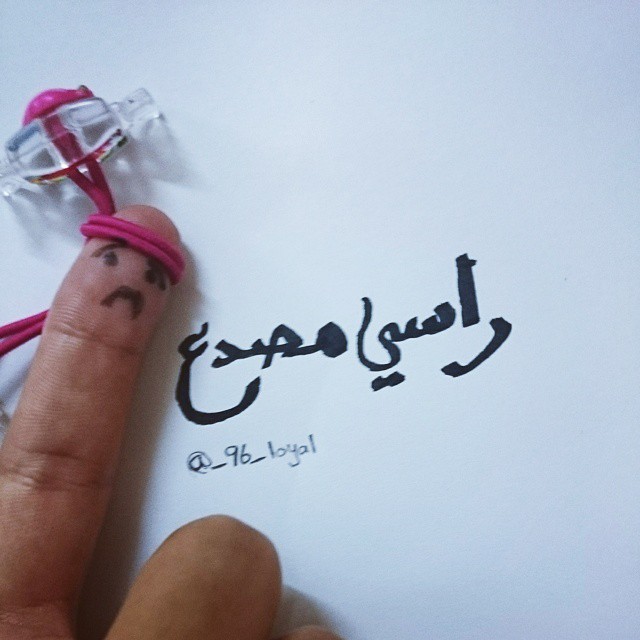 راسي مصدع
@_96_loyal